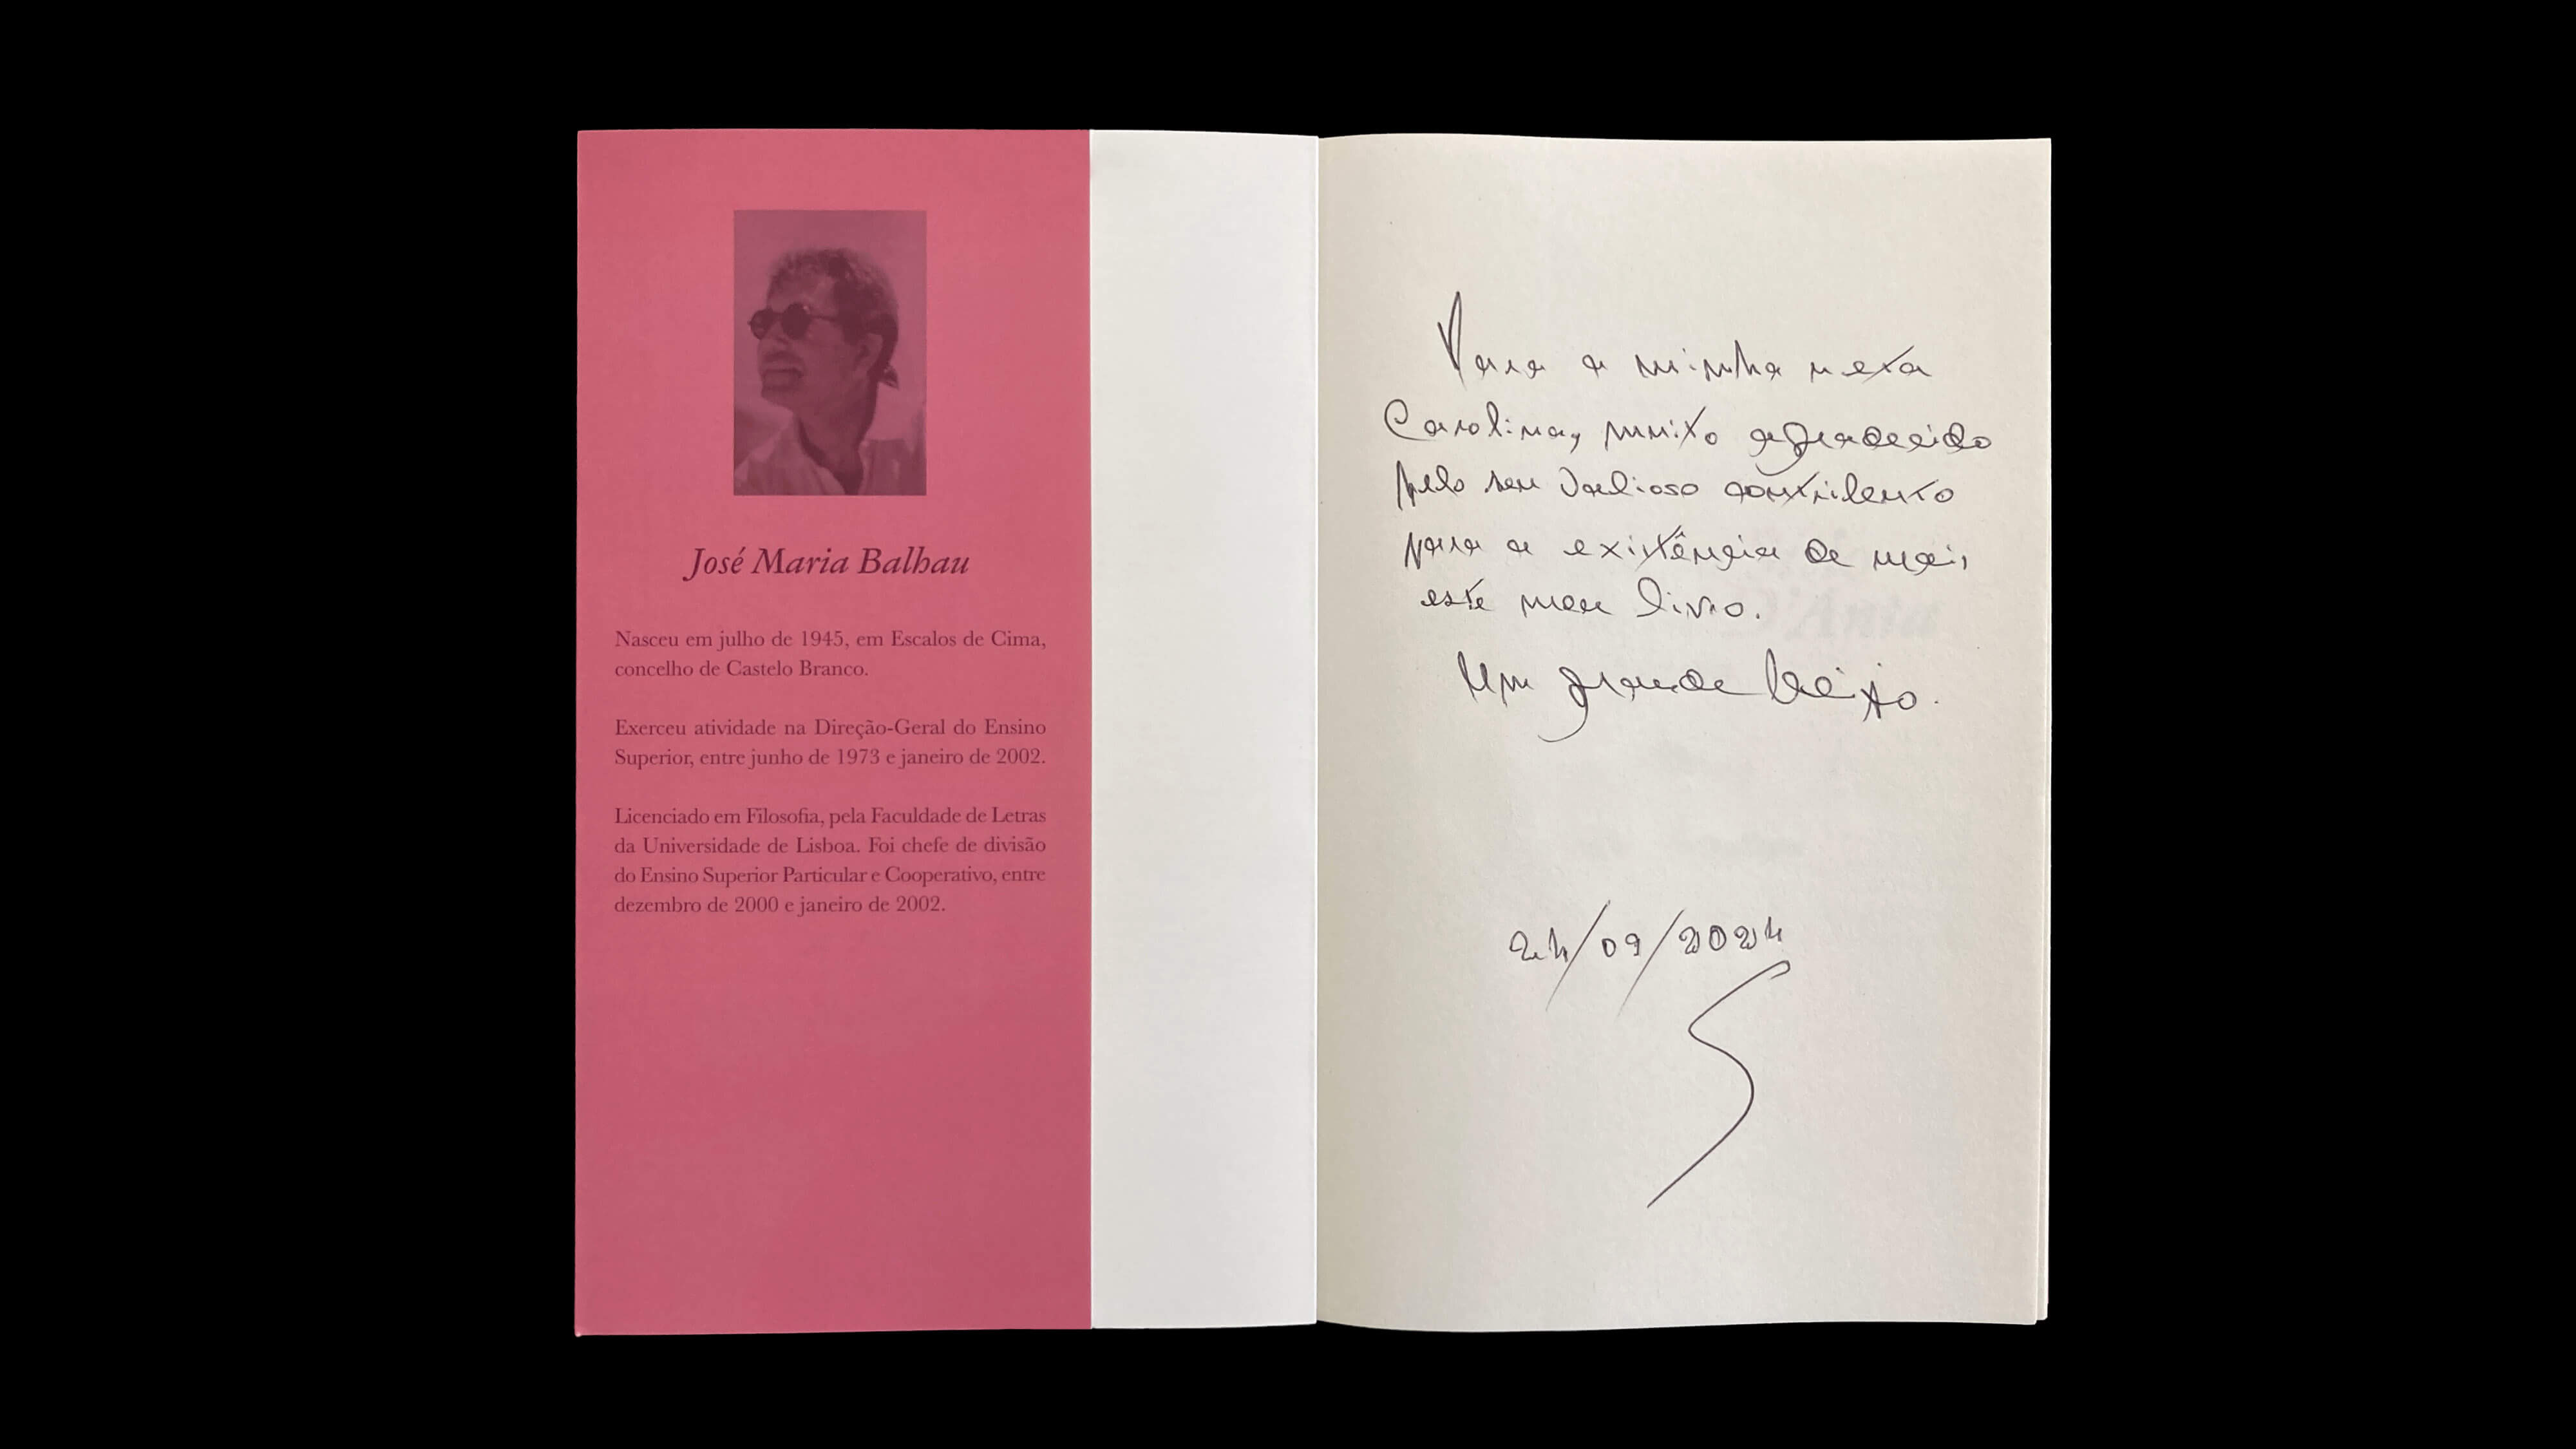 José Maria Balhau
Nasceu em julho de 1945, em Escalos de Cima,
concelho de Castelo Branco.
Exerceu atividade na Direção-Geral do Ensino
Superior, entre junho de 1973 e janeiro de 2002.
Licenciado em Filosofia, pela Faculdade de Letras
da Universidade de Lisboa. Foi chefe de divisão
do Ensino Superior Particular e Cooperativo, entre
dezembro de 2000 e janeiro de 2002.
Para a minha neta
Carolina, muito agradecido
pelo seu valioso contributo
para a existência de mais
este meu livro.
Um grande beijo.
24/09/2024